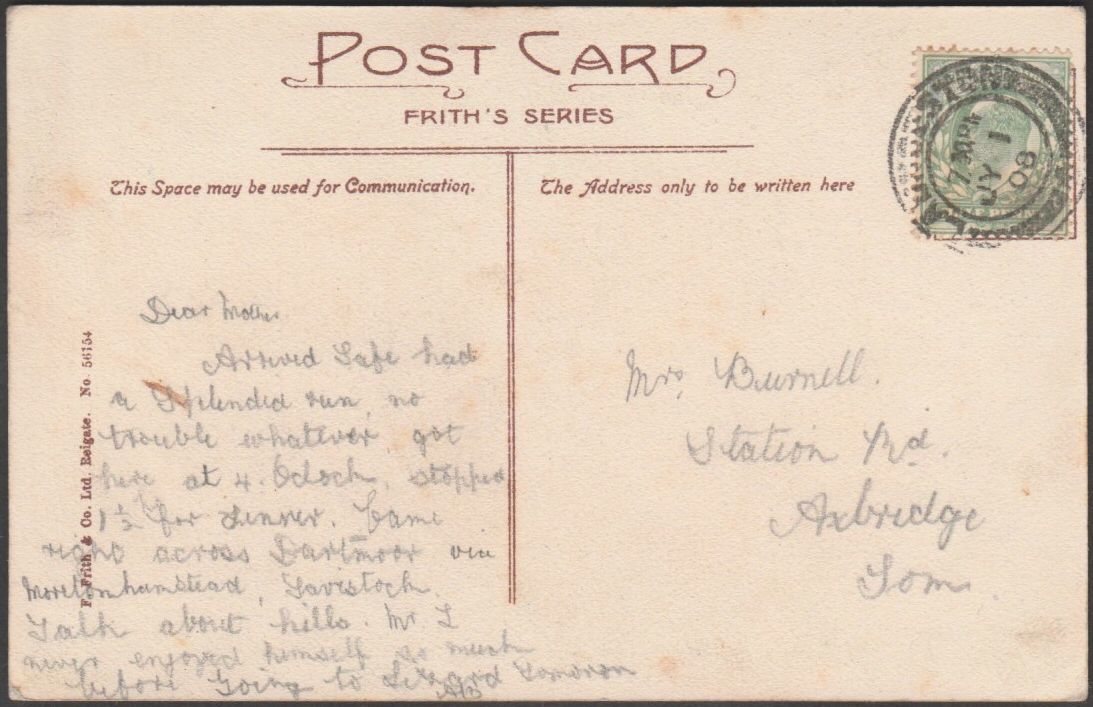 POST CARD
FRITH'S SERIES
This Space may be used for Communication.
The Address only to be written here
LAUNCESTON
7 30 PM
JY 1
08
Dear Mother
Arrived Safe had
a Splended run, no
trouble whatever got
here at 4. Oclock, stopped
1½ hr for dinner. Came
right across Dartmoor via
Moretonhamstead, Tavistock.
Talk about hills. Mr T
never enjoyed himself so much
before Going to Lizard Tomorow
Mrs Burnell.
Station Rd.
Axbridge
Som.
F. Frith & Co. Ltd. Reigate. No. 56154